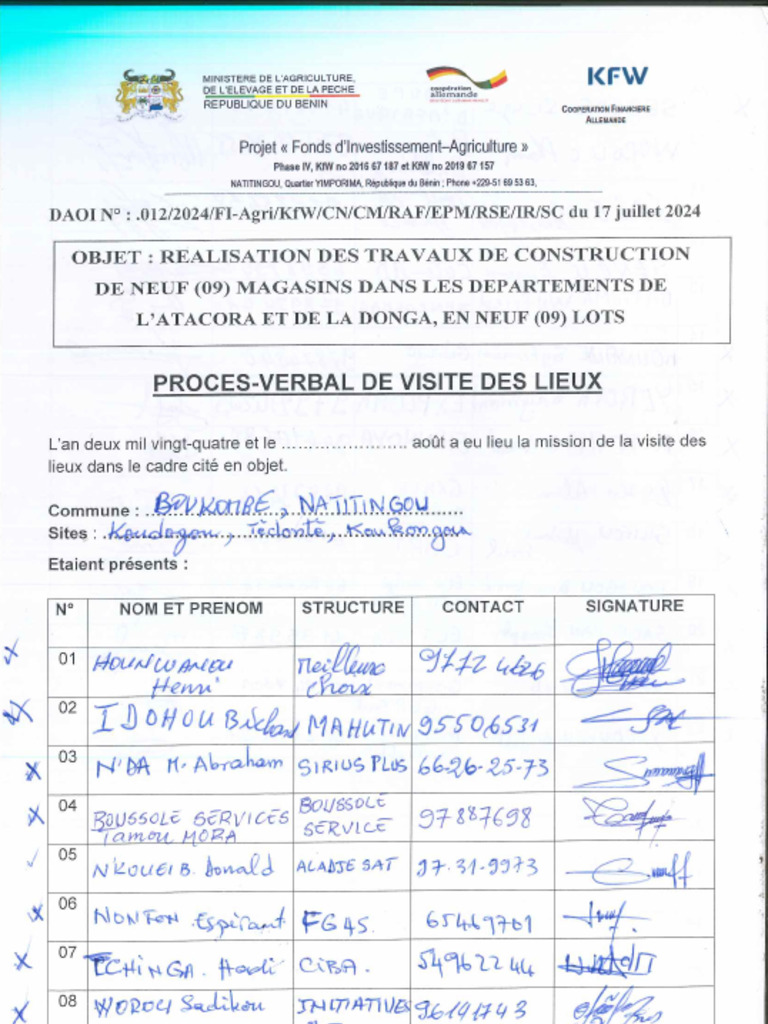 MINISTERE DE L'AGRICULTURE,
DE L'ELEVAGE ET DE LA PECHE
REPUBLIQUE DU BENIN
coopération
allemande
KFW
COOPERATION FINANCIERE
ALLEMANDE
Projet « Fonds d'Investissement–Agriculture »
Phase IV, KfW no 2016 67 187 et KfW no 2019 67 157
NATITINGOU, Quartier YIMPORIMA, République du Bénin ; Phone +229-51 69 53 63,
DAOI N° : .012/2024/FI-Agri/KfW/CN/CM/RAF/EPM/RSE/IR/SC du 17 juillet 2024
OBJET : REALISATION DES TRAVAUX DE CONSTRUCTION
DE NEUF (09) MAGASINS DANS LES DEPARTEMENTS DE
L'ATACORA ET DE LA DONGA, EN NEUF (09) LOTS
PROCES-VERBAL DE VISITE DES LIEUX
L'an deux mil vingt-quatre et le ........................ août a eu lieu la mission de la visite des
lieux dans le cadre cité en objet.
Commune : BOUKOMBE, NATITINGOU
Sites : Koudogou, Tédonté, Koukongou
Etaient présents :
N° NOM ET PRENOM STRUCTURE CONTACT SIGNATURE
01 HOUNWANOU Henri Meilleurs Choix 9772 4626
02 IDOHOU Richard MAHUTIN 95506531
03 N'DA M. Abraham SIRIUS PLUS 66-26-25-73
04 BOUSSOLE SERVICES Tamou MORA BOUSSOLE SERVICE 97887698
05 N'KOUEI B. Donald ALADJE SAT 97-31-9973
06 NONFON Espirant FGAS. 65469701
07 TCHINGA Hadi CIBA. 54962244
08 WOROU Sadikou INITIATIVES 96141743